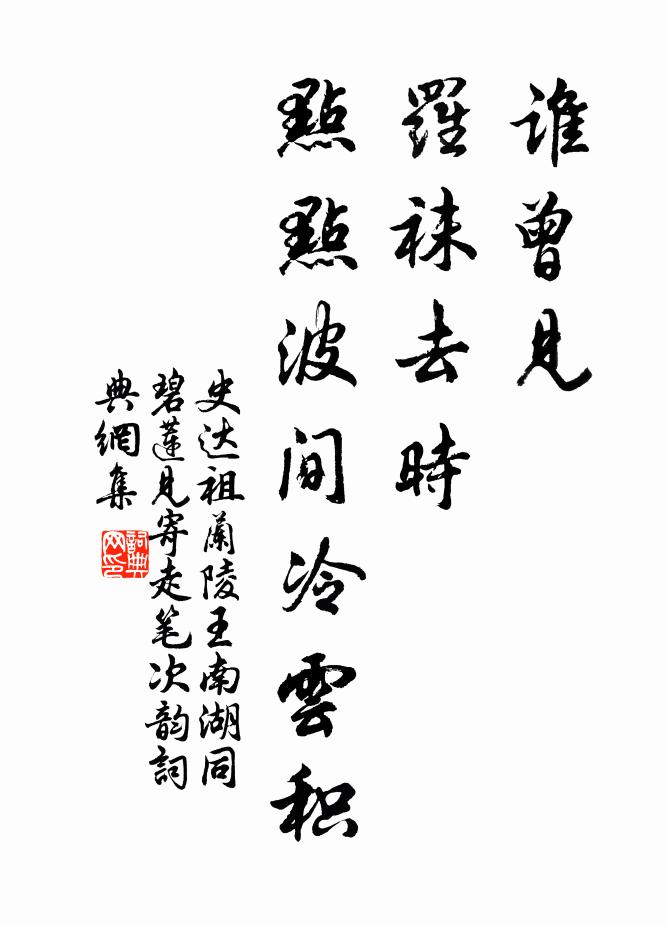 誰曾見
羅袜去時
點點波间冷雲积
史达祖蘭陵王南湖同
碧蓮見寄走笔次韵詞
典網集
詞典网印